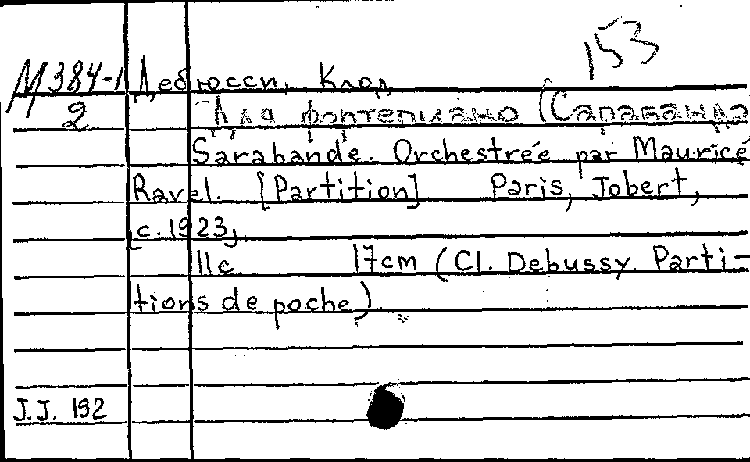 153
М384-1 Дебюсси, Клод
2 Для фортепиано (Сарабанда
Sarabande. Orchestrée par Maurice
Ravel. [Partition] Paris, Jobert,
[c. 1923]
11c. 17cm (Cl. Debussy. Parti-
tions de poche).
J.J. 192